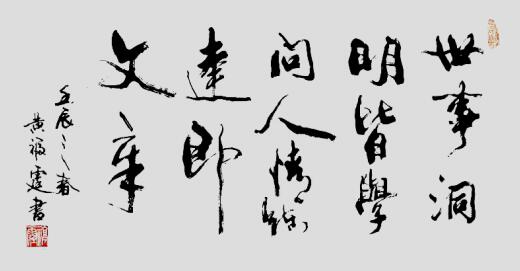 世事洞
明皆學
問人情練
達即
文章
壬辰之春
黄福霆書